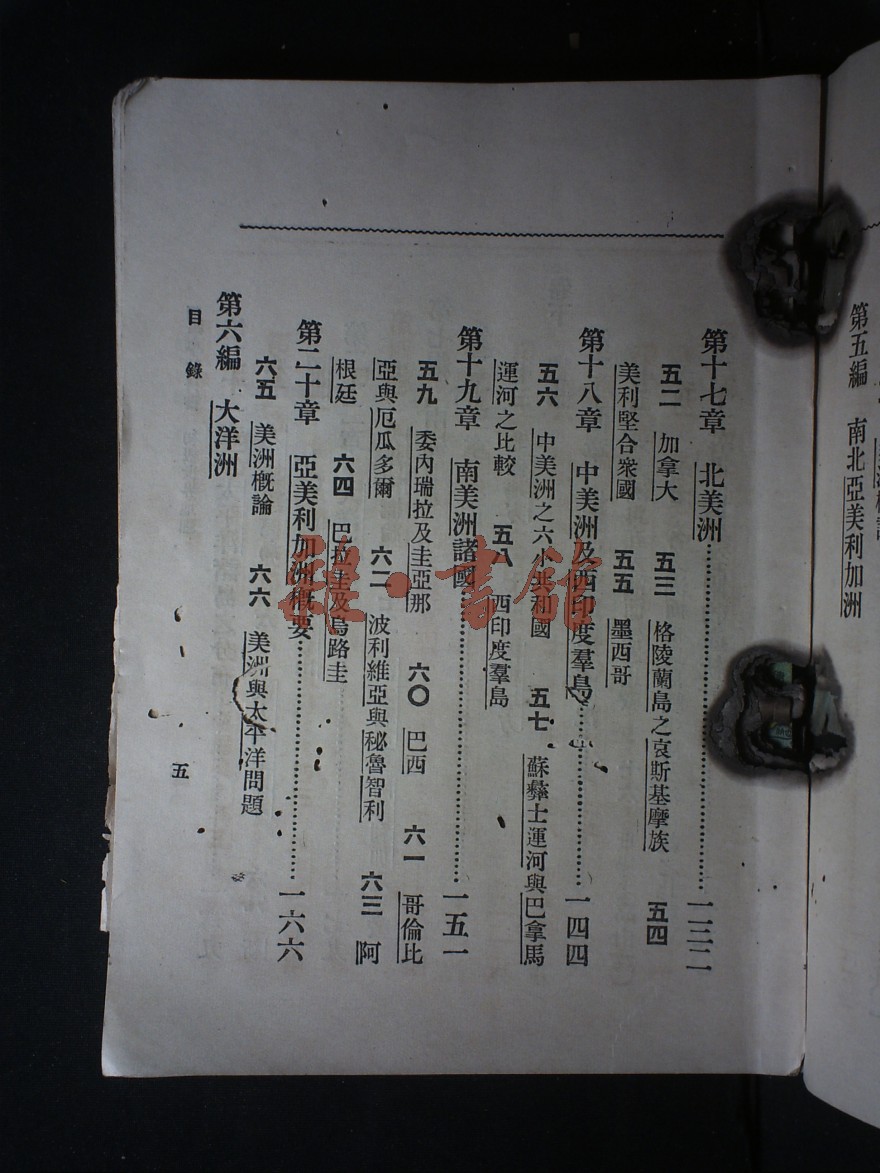 第五編　南北亞美利加洲
第十七章　北美洲……一三二
五二　加拿大　五三　格陵蘭島之哀斯基摩族　五四
美利堅合衆國　五五　墨西哥
第十八章　中美洲及西印度羣島……一四四
五六　中美洲之六小共和國　五七　蘇彝士運河與巴拿馬
運河之比較　五八　西印度羣島
第十九章　南美洲諸國……一五一
五九　委內瑞拉及圭亞那　六〇　巴西　六一　哥倫比
亞與厄瓜多爾　六二　波利維亞與秘魯智利　六三　阿
根廷　六四　巴拉圭及烏路圭
第二十章　亞美利加洲概要……一六六
六五　美洲概論　六六　美洲與太平洋問題
第六編　大洋洲
目錄
五
雅·書館